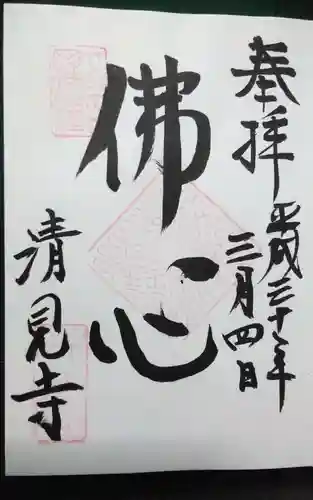 奉拝
平成三十年
三月四日
佛心
清見寺